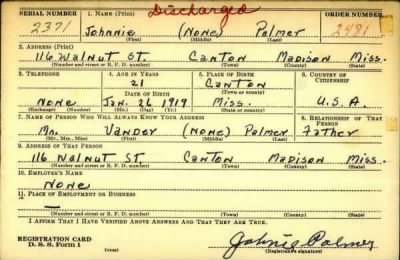 SERIAL NUMBER 1. NAME (Print) Discharged ORDER NUMBER
2371 Johnnie (None) Palmer 2481
(First) (Middle) (Last)
2. ADDRESS (Print)
116 Walnut St. Canton Madison Miss.
(Number and street or R. F. D. number) (Town) (County) (State)
3. TELEPHONE 4. AGE IN YEARS 5. PLACE OF BIRTH 6. COUNTRY OF CITIZENSHIP
21 Canton
DATE OF BIRTH (Town or county)
None Jan. 26 1919 Miss. U.S.A.
(Exchange) (Number) (Mo.) (Day) (Yr.) (State or country)
7. NAME OF PERSON WHO WILL ALWAYS KNOW YOUR ADDRESS 8. RELATIONSHIP OF THAT PERSON
Mr. Vander (None) Palmer Father
(Mr., Mrs., Miss) (First) (Middle) (Last)
9. ADDRESS OF THAT PERSON
116 Walnut St Canton Madison Miss.
(Number and street or R. F. D. number) (Town) (County) (State)
10. EMPLOYER'S NAME
None
11. PLACE OF EMPLOYMENT OR BUSINESS
—
(Number and street or R. F. D. number) (Town) (County) (State)
I AFFIRM THAT I HAVE VERIFIED ABOVE ANSWERS AND THAT THEY ARE TRUE.
REGISTRATION CARD
D. S. S. FORM 1 (over) Johnie Palmer
(Registrant's signature)